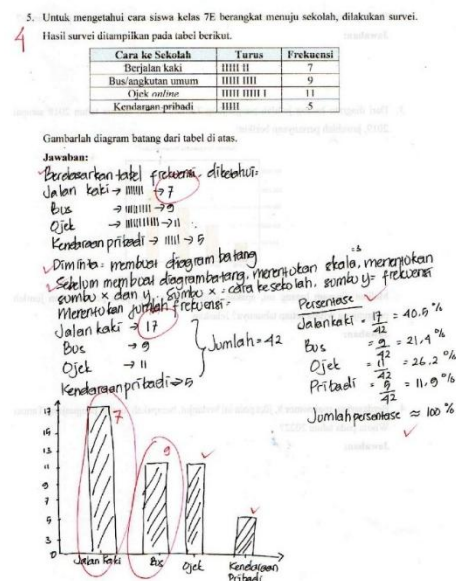 5. Untuk mengetahui cara siswa kelas 7E berangkat menuju sekolah, dilakukan survei.
Hasil survei ditampilkan pada tabel berikut.
4
Cara ke Sekolah Turus Frekuensi
Berjalan kaki IIIII II 7
Bus/angkutan umum IIIII IIII 9
Ojek online IIIII IIIII I 11
Kendaraan pribadi IIIII 5
Gambarlah diagram batang dari tabel di atas.
Jawaban:
Berdasarkan tabel frekuensi, diketahui:
Jalan kaki → IIIIIII → 7
Bus → IIIIIIIII → 9
Ojek → IIIIIIIIIII → 11
Kendaraan pribadi → IIIII → 5
Diminta = membuat diagram batang
Sebelum membuat diagram batang, menentukan skala, menentukan
sumbu x dan y, sumbu x = cara ke sekolah, sumbu y = frekuensi
Menentukan jumlah frekuensi =
Jalan kaki → 17
Bus → 9
Ojek → 11
Kendaraan pribadi → 5
Jumlah = 42
Persentase
Jalan kaki = 17/42 = 40.5 %
Bus = 9/42 = 21.4 %
Ojek = 11/42 = 26.2 %
Pribadi = 5/42 = 11.9 %
Jumlah persentase ≈ 100 %
17
15
13
11
9
7
5
3
0
7
9
Jalan Kaki Bus Ojek Kendaraan
Pribadi